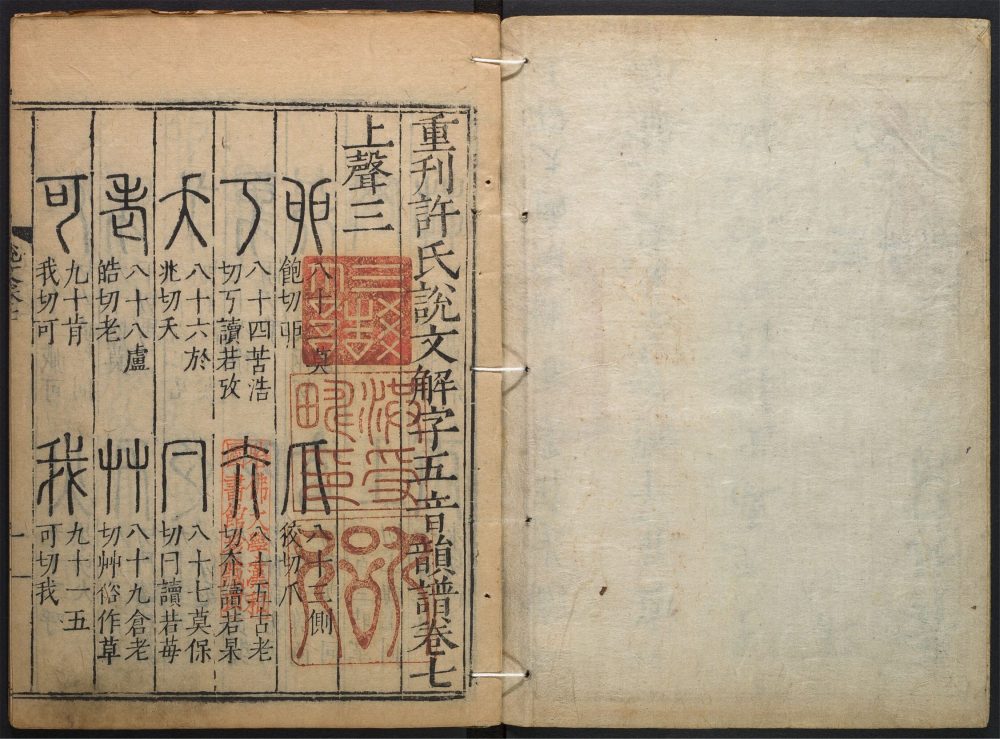 重刊許氏說文解字五音韻譜卷七
上聲三
卯
八十二莫
飽切卯
爪
八十三側
狡切爪
丂
八十四苦浩
切丂讀若攷
夲
八十五古老
切夲讀若杲
夭
八十六於
兆切夭
冃
八十七莫保
切冃讀若苺
老
八十八盧
皓切老
艸
八十九倉老
切艸俗作草
可
九十肯
我切可
我
九十一五
可切我
一